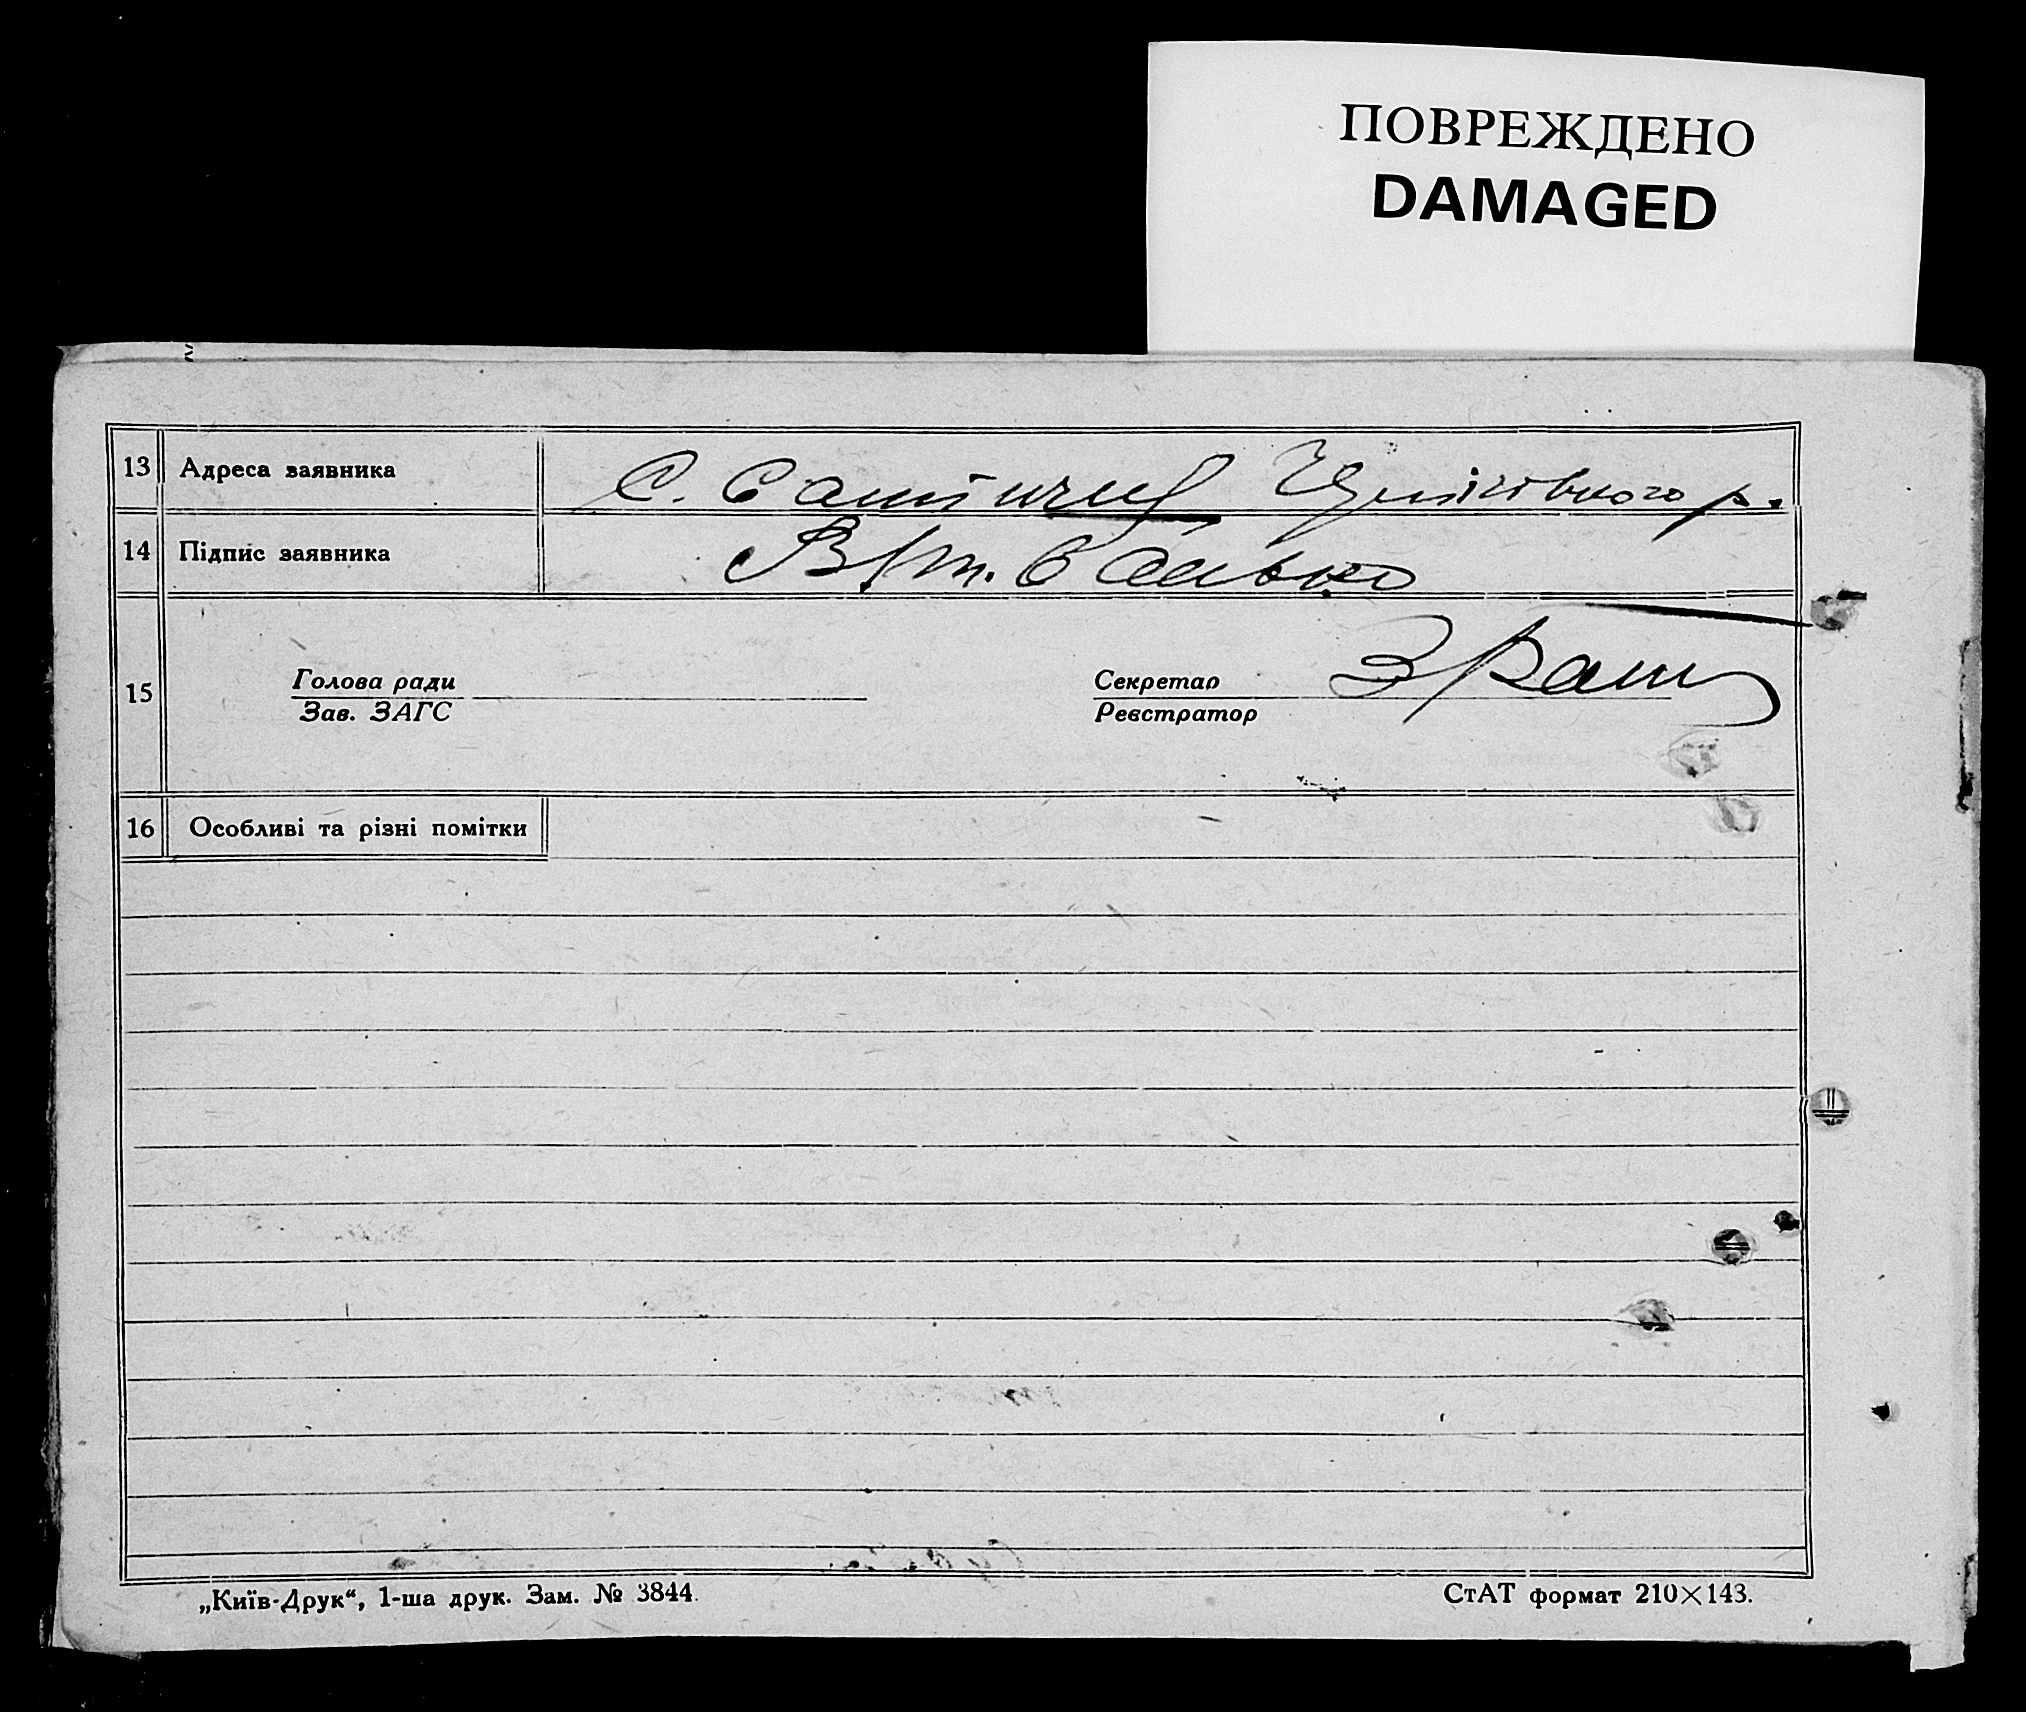 ПОВРЕЖДЕНО
DAMAGED
13 Адреса заявника С. р.
14 Підпис заявника
Голова ради Секретар
15
Зав. ЗАГС Реєстратор
16 Особливі та різні помітки
„Київ-Друк“, 1-ша друк. Зам. № 3844. СтАТ формат 210×143.